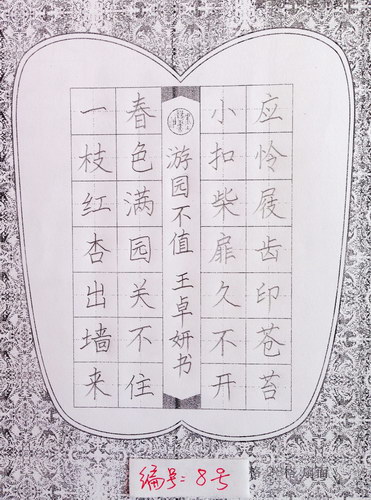 应怜屐齿印苍苔
小扣柴扉久不开
游园不值 王卓妍书
春色满园关不住
一枝红杏出墙来
编号:8号